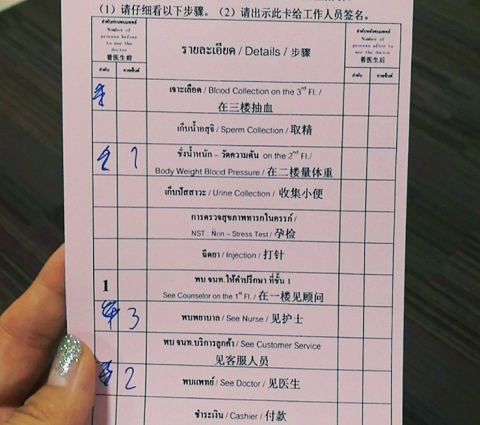 (1) 请仔细看以下步骤。(2) 请出示此卡给工作人员签名。
ลำดับก่อนพบแพทย์
Number of
process before
to see the
doctor
看医生前
รายละเอียด / Details / 步骤
ลำดับหลังพบแพทย์
Number of
process after to
see the doctor
看医生后
เจาะเลือด / Blood Collection on the 3rd Fl. /
在三楼抽血
เก็บน้ำอสุจิ / Sperm Collection / 取精
7
ชั่งน้ำหนัก - วัดความดัน on the 2nd Fl./
Body Weight Blood Pressure / 在二楼量体重
เก็บปัสสาวะ / Urine Collection / 收集小便
การตรวจสุขภาพทารกในครรภ์ /
NST : Non - Stress Test / 孕检
ฉีดยา / Injection / 打针
1
พบ จนท.ให้คำปรึกษา ที่ชั้น 1
See Counselor on the 1st Fl. / 在一楼见顾问
3
พบพยาบาล / See Nurse / 见护士
พบ จนท.บริการลูกค้า / See Customer Service
见客服人员
2
พบแพทย์ / See Doctor / 见医生
ชำระเงิน / Cashier / 付款